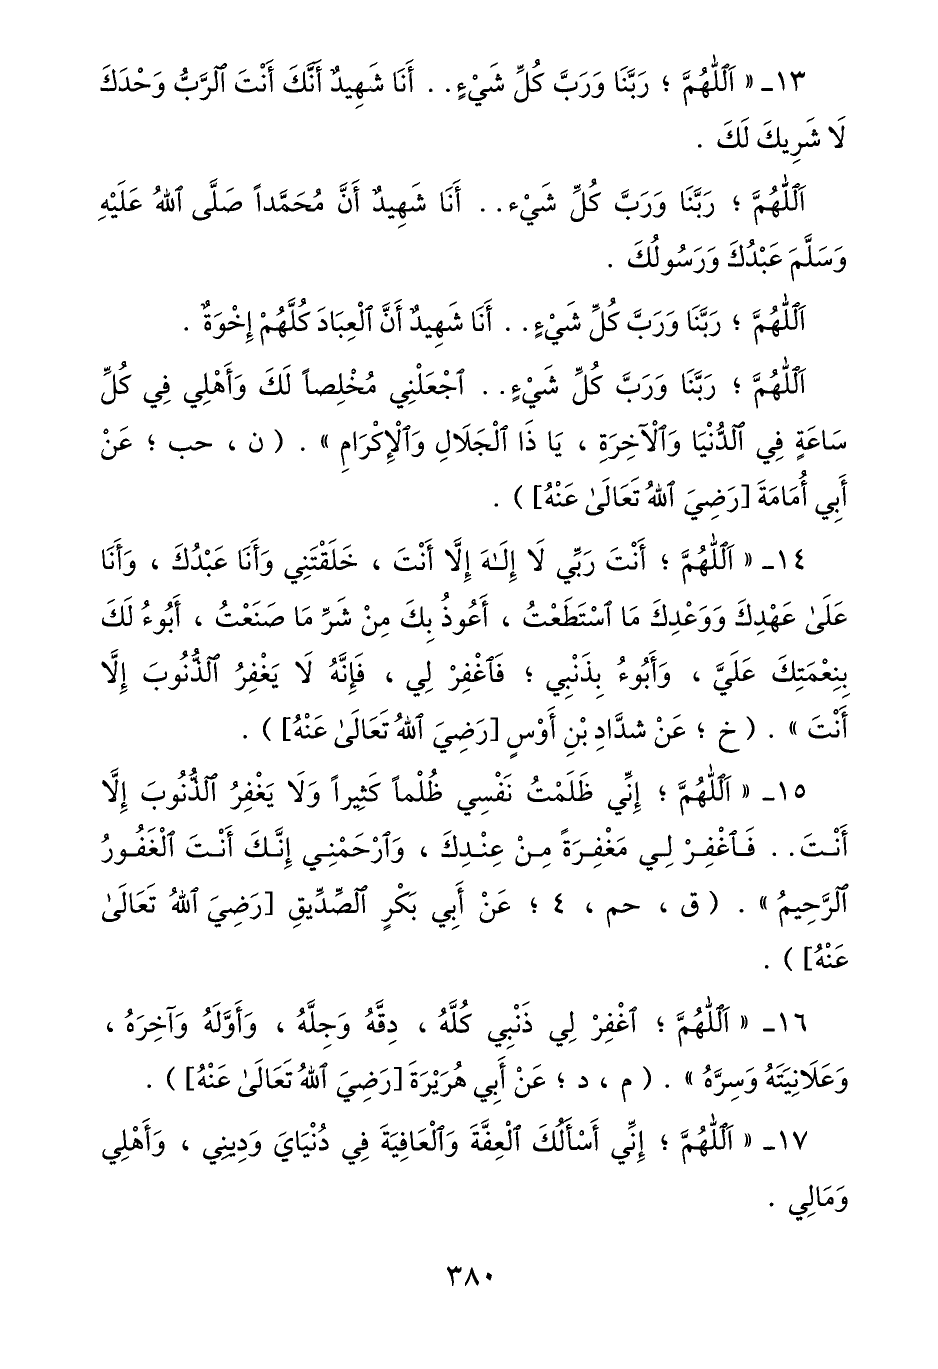 ١٣ـ « اَللّٰهُمَّ ؛ رَبَّنَا وَرَبَّ كُلِّ شَيْءٍ . . أَنَا شَهِيدٌ أَنَّكَ أَنْتَ ٱلرَّبُّ وَحْدَكَ
لَا شَرِيكَ لَكَ .
اَللّٰهُمَّ ؛ رَبَّنَا وَرَبَّ كُلِّ شَيْء . . أَنَا شَهِيدٌ أَنَّ مُحَمَّداً صَلَّى ٱللهُ عَلَيْهِ
وَسَلَّمَ عَبْدُكَ وَرَسُولُكَ .
اَللّٰهُمَّ ؛ رَبَّنَا وَرَبَّ كُلِّ شَيْءٍ . . أَنَا شَهِيدٌ أَنَّ ٱلْعِبَادَ كُلَّهُمْ إِخْوَةٌ .
اَللّٰهُمَّ ؛ رَبَّنَا وَرَبَّ كُلِّ شَيْءٍ . . ٱجْعَلْنِي مُخْلِصاً لَكَ وَأَهْلِي فِي كُلِّ
سَاعَةٍ فِي ٱلدُّنْيَا وَٱلْآخِرَةِ ، يَا ذَا ٱلْجَلَالِ وَٱلْإِكْرَامِ » . ( ن ، حب ؛ عَنْ
أَبِي أُمَامَةَ [رَضِيَ ٱللهُ تَعَالَىٰ عَنْهُ] ) .
١٤ـ « اَللّٰهُمَّ ؛ أَنْتَ رَبِّي لَا إِلَـٰهَ إِلَّا أَنْتَ ، خَلَقْتَنِي وَأَنَا عَبْدُكَ ، وَأَنَا
عَلَىٰ عَهْدِكَ وَوَعْدِكَ مَا ٱسْتَطَعْتُ ، أَعُوذُ بِكَ مِنْ شَرِّ مَا صَنَعْتُ ، أَبُوءُ لَكَ
بِنِعْمَتِكَ عَلَيَّ ، وَأَبُوءُ بِذَنْبِي ؛ فَٱغْفِرْ لِي ، فَإِنَّهُ لَا يَغْفِرُ ٱلذُّنُوبَ إِلَّا
أَنْتَ » . ( خ ؛ عَنْ شدَّادِ بْنِ أَوْسٍ [رَضِيَ ٱللهُ تَعَالَىٰ عَنْهُ] ) .
١٥ـ « اَللّٰهُمَّ ؛ إِنِّي ظَلَمْتُ نَفْسِي ظُلْماً كَثِيراً وَلَا يَغْفِرُ ٱلذُّنُوبَ إِلَّا
أَنْتَ . . فَٱغْفِرْ لِي مَغْفِرَةً مِنْ عِنْدِكَ ، وَٱرْحَمْنِي إِنَّكَ أَنْتَ ٱلْغَفُورُ
ٱلرَّحِيمُ » . ( ق ، حم ، ٤ ؛ عَنْ أَبِي بَكْرٍ ٱلصِّدِّيقِ [رَضِيَ ٱللهُ تَعَالَىٰ
عَنْهُ] ) .
١٦ـ « اَللّٰهُمَّ ؛ ٱغْفِرْ لِي ذَنْبِي كُلَّهُ ، دِقَّهُ وَجِلَّهُ ، وَأَوَّلَهُ وَآخِرَهُ ،
وَعَلَانِيَتَهُ وَسِرَّهُ » . ( م ، د ؛ عَنْ أَبِي هُرَيْرَةَ [رَضِيَ ٱللهُ تَعَالَىٰ عَنْهُ] ) .
١٧ـ « اَللّٰهُمَّ ؛ إِنِّي أَسْأَلُكَ ٱلْعِفَّةَ وَٱلْعَافِيَةَ فِي دُنْيَايَ وَدِينِي ، وَأَهْلِي
وَمَالِي .
٣٨٠